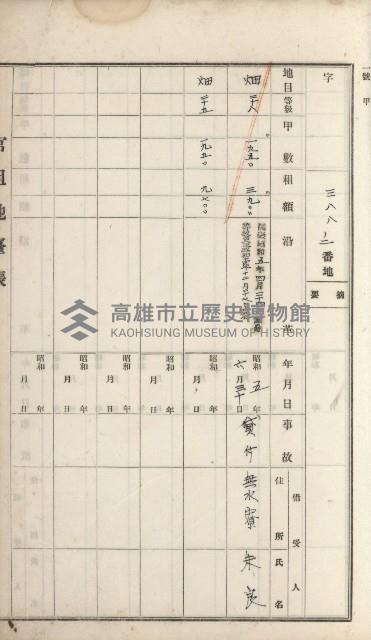 一號甲
字
三八八ノ二番地
摘要
地目 等級 甲數 租額 沿革 年月日 事故 借受人 住所 氏名
畑 二八 一九五〇 三九〇〇
昭和五年六月三十日 貸付 無水寮 朱良
畑 二十五 一九五〇 九七〇〇
昭和 年 月 日
昭和 年 月 日
昭和 年 月 日
昭和 年 月 日
昭和 年 月 日
官租地臺帳
高雄市立歷史博物館
KAOHSIUNG MUSEUM OF HISTORY